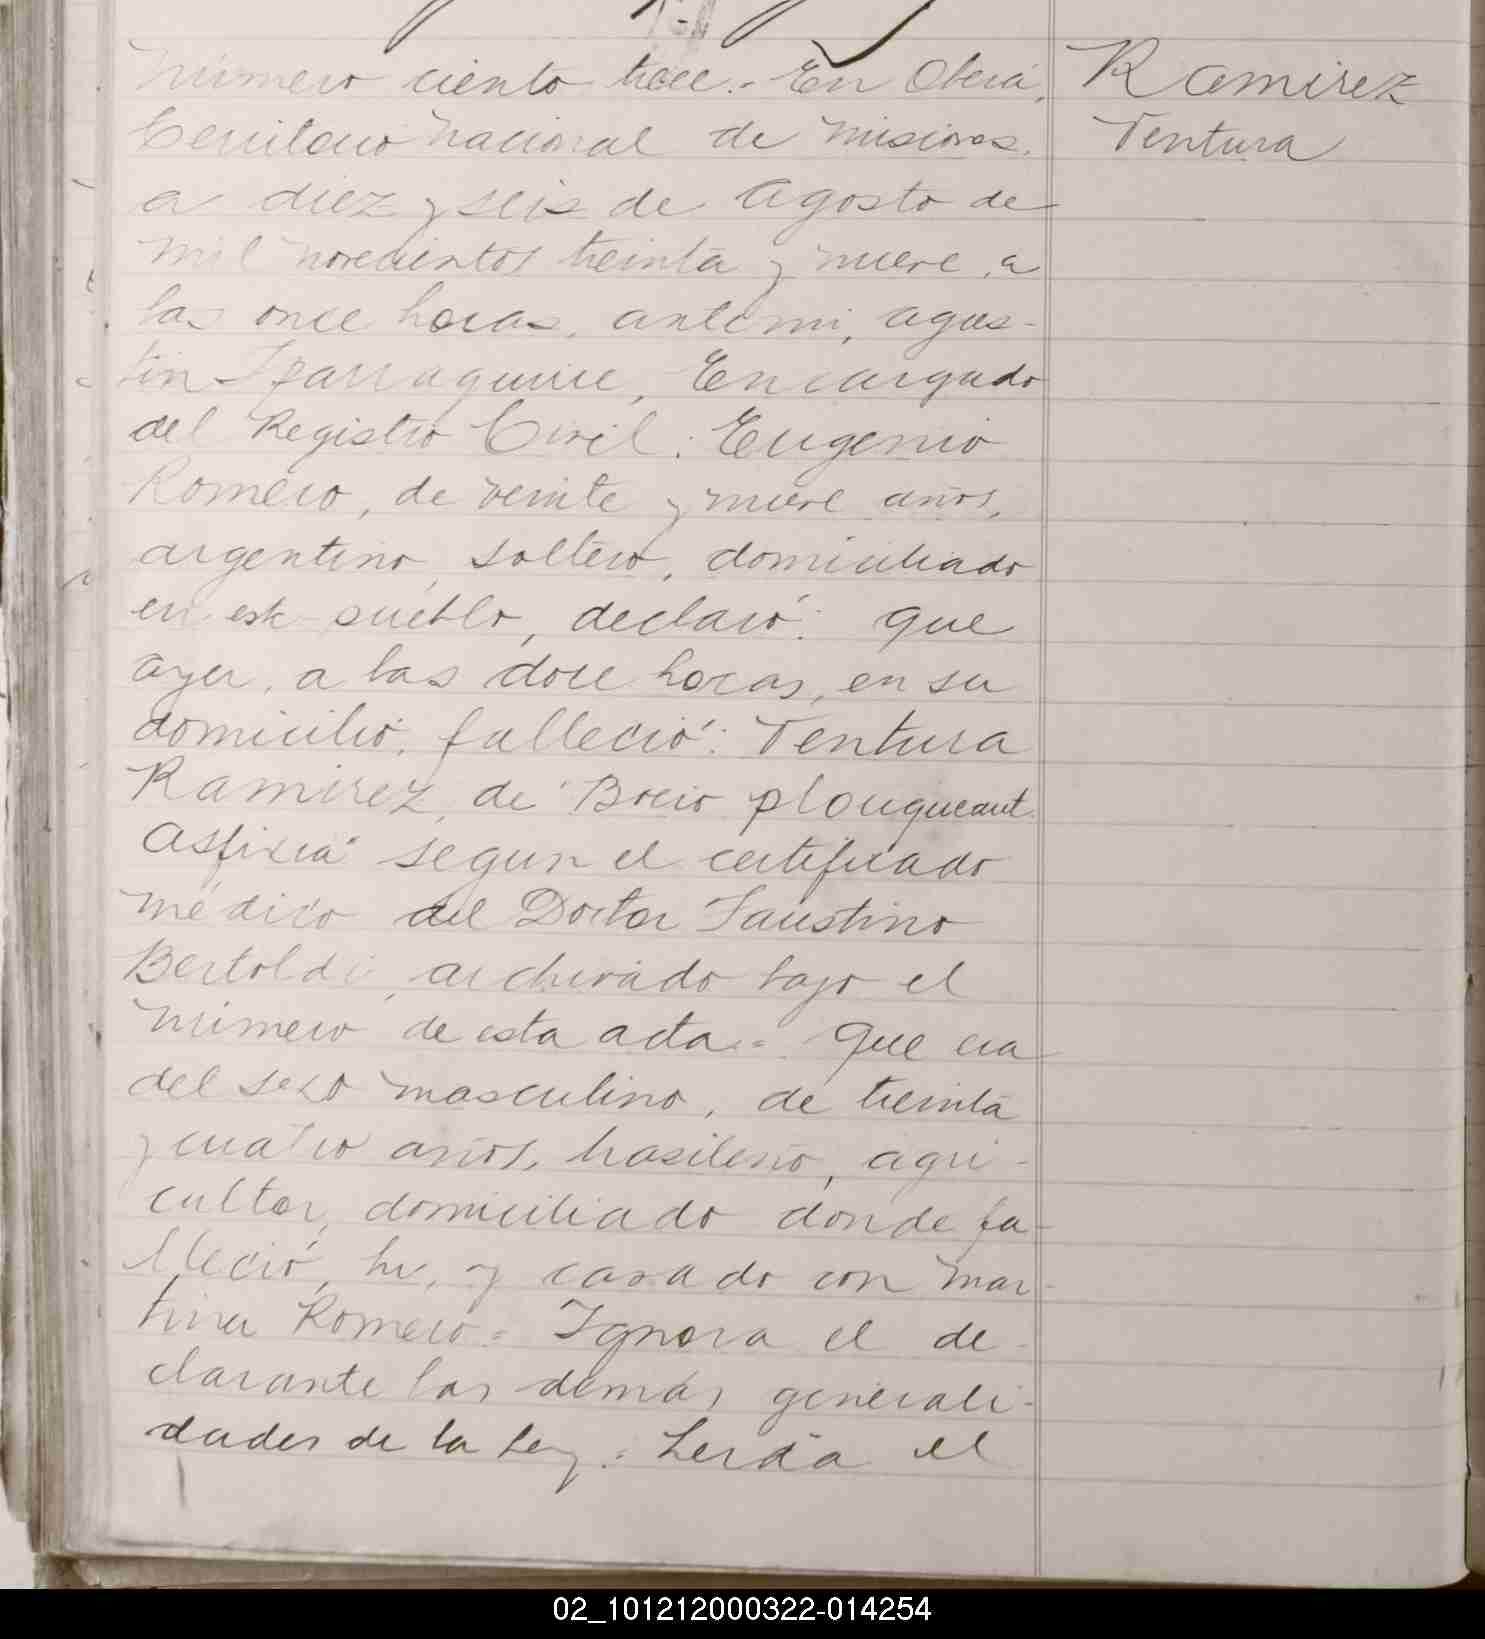 Número ciento trece.- En Oberá,
Ramirez
Territorio Nacional de Misiones,
Tentura
a diez y seis de Agosto de
mil novecientos treinta y nueve, a
las once horas, ante mi, Agus-
tin Iparraguirre, Encargado
del Registro Civil: Eugenio
Romero, de veinte y nueve años,
argentino, soltero, domiciliado
en este pueblo, declaró: Que
ayer, a las doce horas, en su
domicilio, falleció: Tentura
Ramirez, de "Bocio plongueant
Asfixia" segun el certificado
médico del Doctor Faustino
Bertoldi, archivado bajo el
número de esta acta.= Que era
del sexo masculino, de treinta
y cuatro años, brasileño, agri-
cultor, domiciliado donde fa-
lleció, y casado con Mar-
tina Romero.= Ignora el de-
clarante las demás generali-
dades de la Ley.= Leída el
02_101212000322-014254